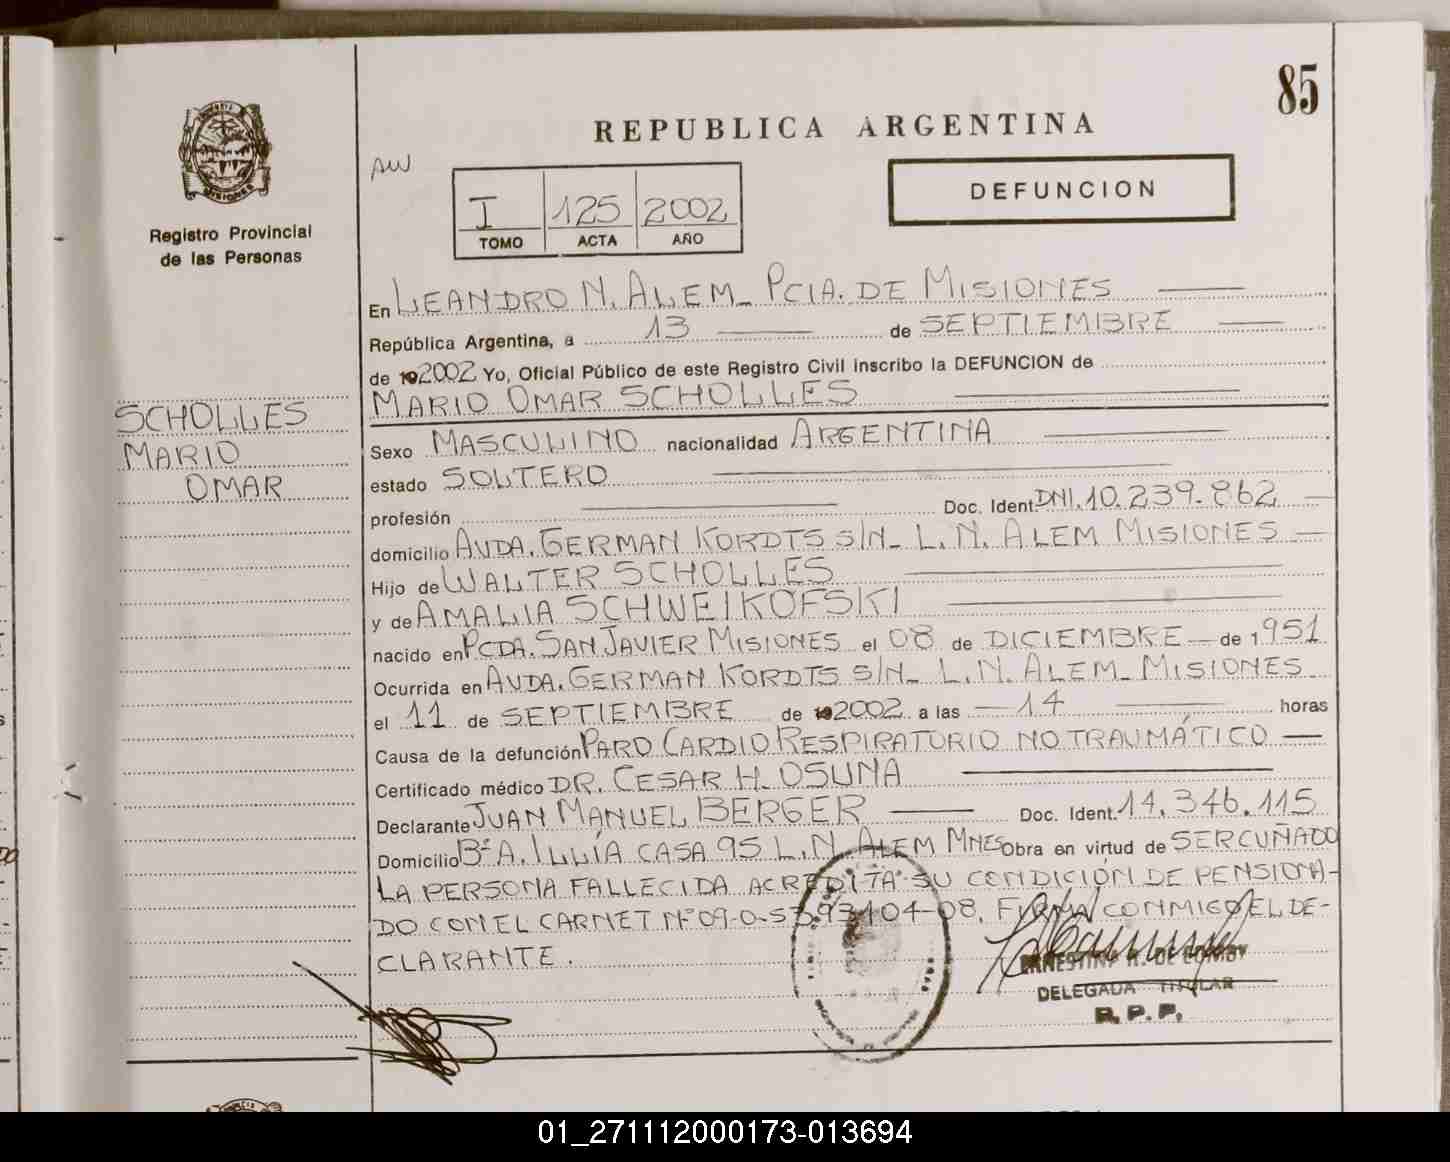 85
REPUBLICA ARGENTINA
AW
I 125 2002
TOMO ACTA AÑO
DEFUNCION
Registro Provincial
de las Personas
En LEANDRO N. ALEM_ PCIA. DE MISIONES
República Argentina, a 13 de SEPTIEMBRE
de 2002 Yo, Oficial Público de este Registro Civil inscribo la DEFUNCION de
MARIO OMAR SCHOLLES
SCHOLLES
MARIO
OMAR
Sexo MASCULINO nacionalidad ARGENTINA
estado SOLTERO
profesión Doc. Ident. DNI. 10.239.862
domicilio AVDA. GERMAN KORDTS S/N_ L.N. ALEM MISIONES
Hijo de WALTER SCHOLLES
y de AMALIA SCHWEIKOFSKI
nacido en PCDA. SAN JAVIER MISIONES el 08 de DICIEMBRE de 1951
Ocurrida en AVDA. GERMAN KORDTS S/N_ L.N. ALEM_ MISIONES
el 11 de SEPTIEMBRE de 2002 a las 14 horas
Causa de la defunción PARO CARDIO RESPIRATORIO NO TRAUMÁTICO
Certificado médico DR. CESAR H. OSUNA
Declarante JUAN MANUEL BERGER Doc. Ident. 14.346.115
Domicilio Bº A. ILLÍA CASA 95 L.N. ALEM MNES Obra en virtud de SER CUÑADO
LA PERSONA FALLECIDA ACREDITA SU CONDICIÓN DE PENSIONA-
DO CON EL CARNET Nº 09-0-5393104-08. FIRMA CONMIGO EL DE-
CLARANTE.
DELEGADA TITULAR
R.P.P.
01_271112000173-013694